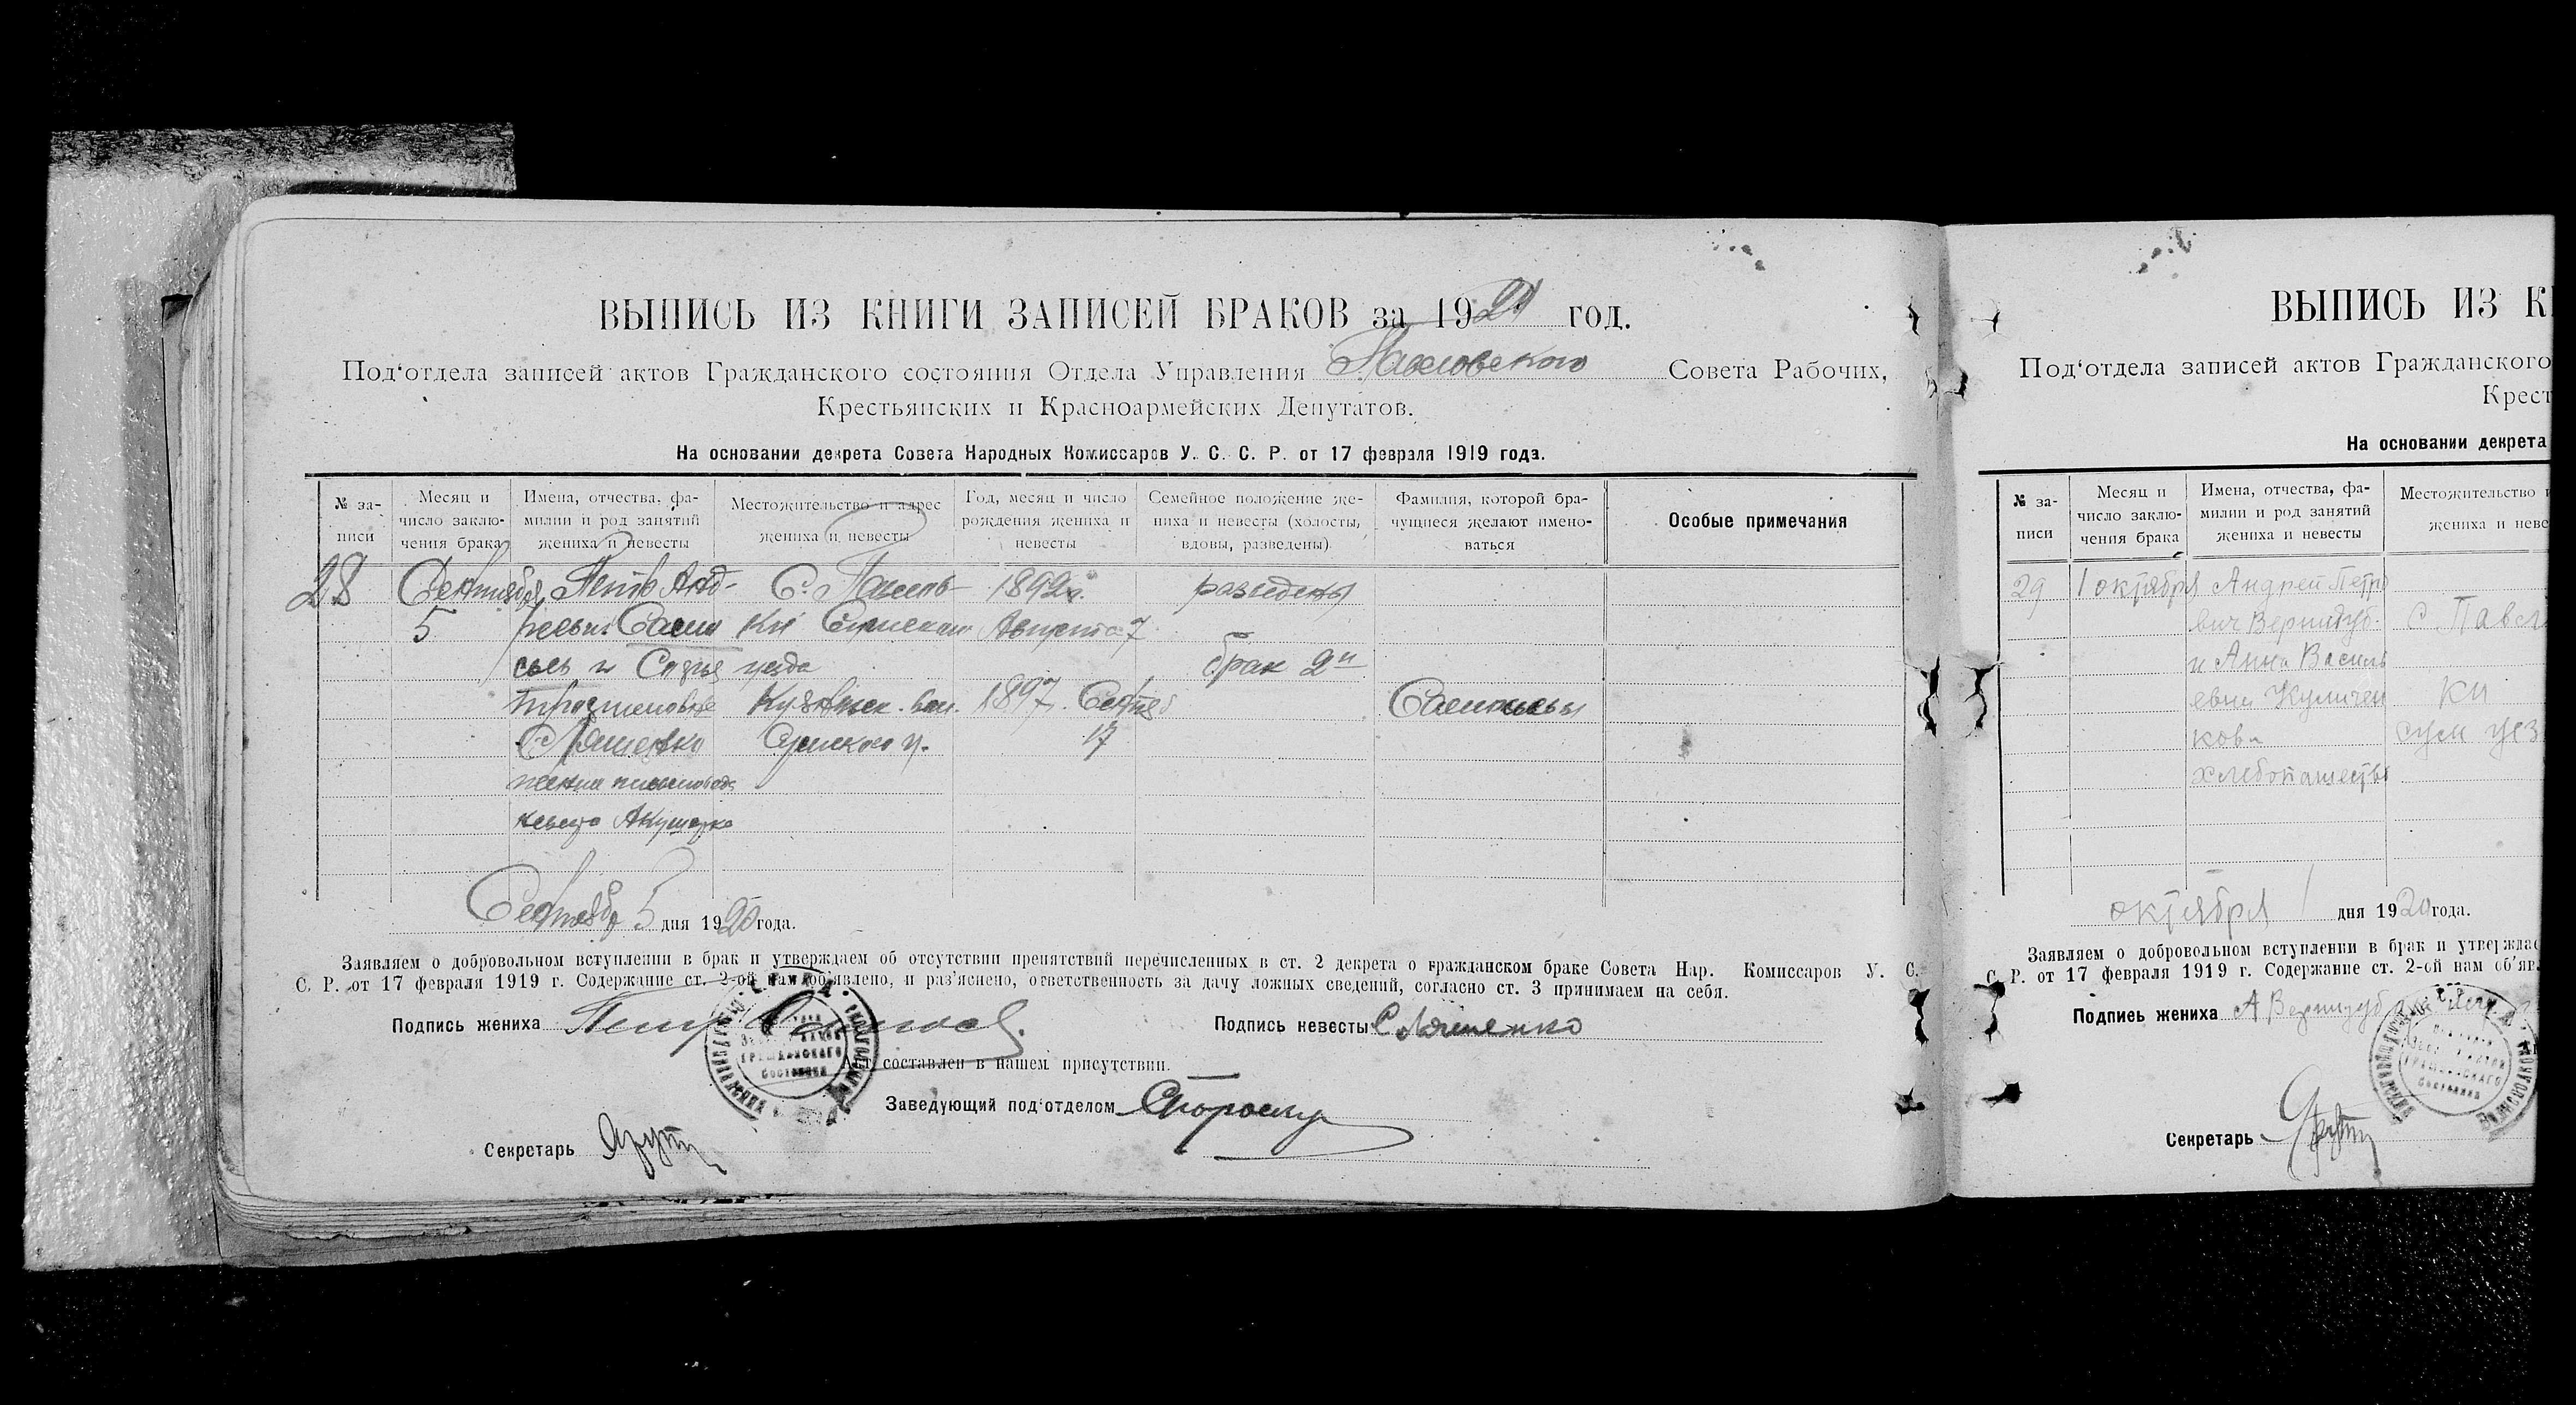 ВЫПИСЬ ИЗ КНИГИ ЗАПИСЕЙ БРАКОВ за 1920 год.
Под‘отдела записей актов Гражданского состояния Отдела Управления Павловского Совета Рабочих,
Крестьянских и Красноармейских Депутатов.
На основании декрета Совета Народных Комиссаров У. С. С. Р. от 17 февраля 1919 года.
№ за-
писи
Месяц и
число заклю-
чения брака
Имена, отчества, фа-
милии и род занятий
жениха и невесты
Местожительство и адрес
жениха и невесты
Год, месяц и число
рождения жениха и
невесты
Семейное положение же-
ниха и невесты (холосты,
вдовы, разведены)
Фамилия, которой бра-
чущиеся желают имено-
ваться
Особые примечания
28 Сентября Петр Анд- С. Павлов- 1892г. разведены
5 реевич ки Сумского Августа 7
и Софья уезда брак 2й
1897. Сентяб
Ляшенко Сумского у. 17
невеста Акушерка
Сентября 5 дня 1920 года.
Заявляем о добровольном вступлении в брак и утверждаем об отсутствии препятствий перечисленных в ст. 2 декрета о гражданском браке Совета Нар. Комиссаров У. С.
С. Р. от 17 февраля 1919 г. Содержание ст. 2-ой нам об‘явлено, и раз‘яснено, ответственность за дачу ложных сведений, согласно ст. 3 принимаем на себя.
Подпись жениха Петр
Подпись невесты С Ляшенко
Акт составлен в нашем присутствии.
Заведующий под‘отделом
Секретарь
ВЫПИСЬ ИЗ К
Под‘отдела записей актов Гражданского
Крест
На основании декрета
№ за-
писи
Месяц и
число заклю-
чения брака
Имена, отчества, фа-
милии и род занятий
жениха и невесты
Местожительство и
жениха и неве
29 1 октября Андрей Петро
вич Вернидуб- С Павл
и Анна Василь
евна Куличен КИ
кова сум уез
хлебопашество
октября 1 дня 1920 года.
Заявляем о добровольном вступлении в брак и утвержда
С. Р. от 17 февраля 1919 г. Содержание ст. 2-ой нам об‘яв
Подпись жениха А Вернидуб
Секретарь